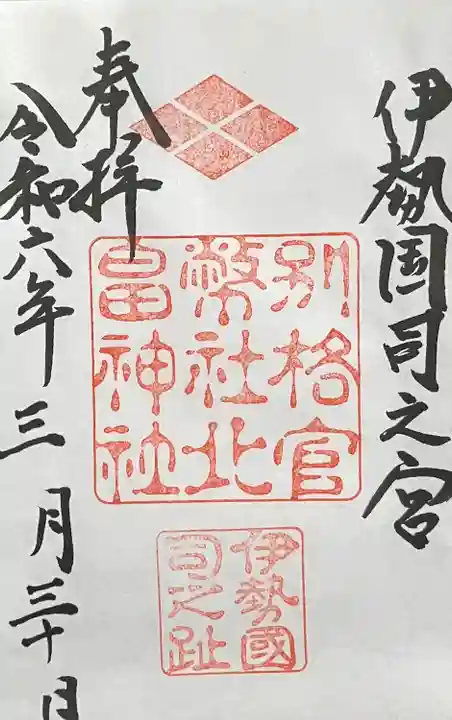 伊勢国司之宮
別格官
幣社北
畠神社
伊勢國
司之趾
奉拝
令和六年三月三十日